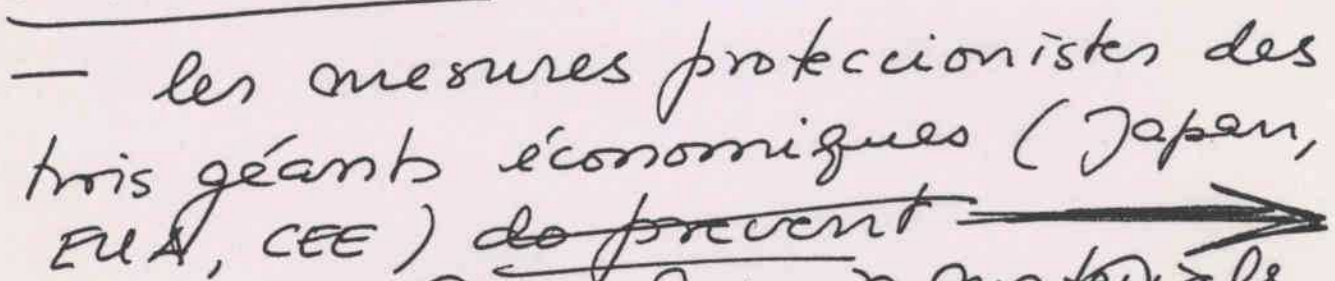 — les mesures proteccionistes des
trois géants économiques (Japan,
EUA, CEE) do prevent